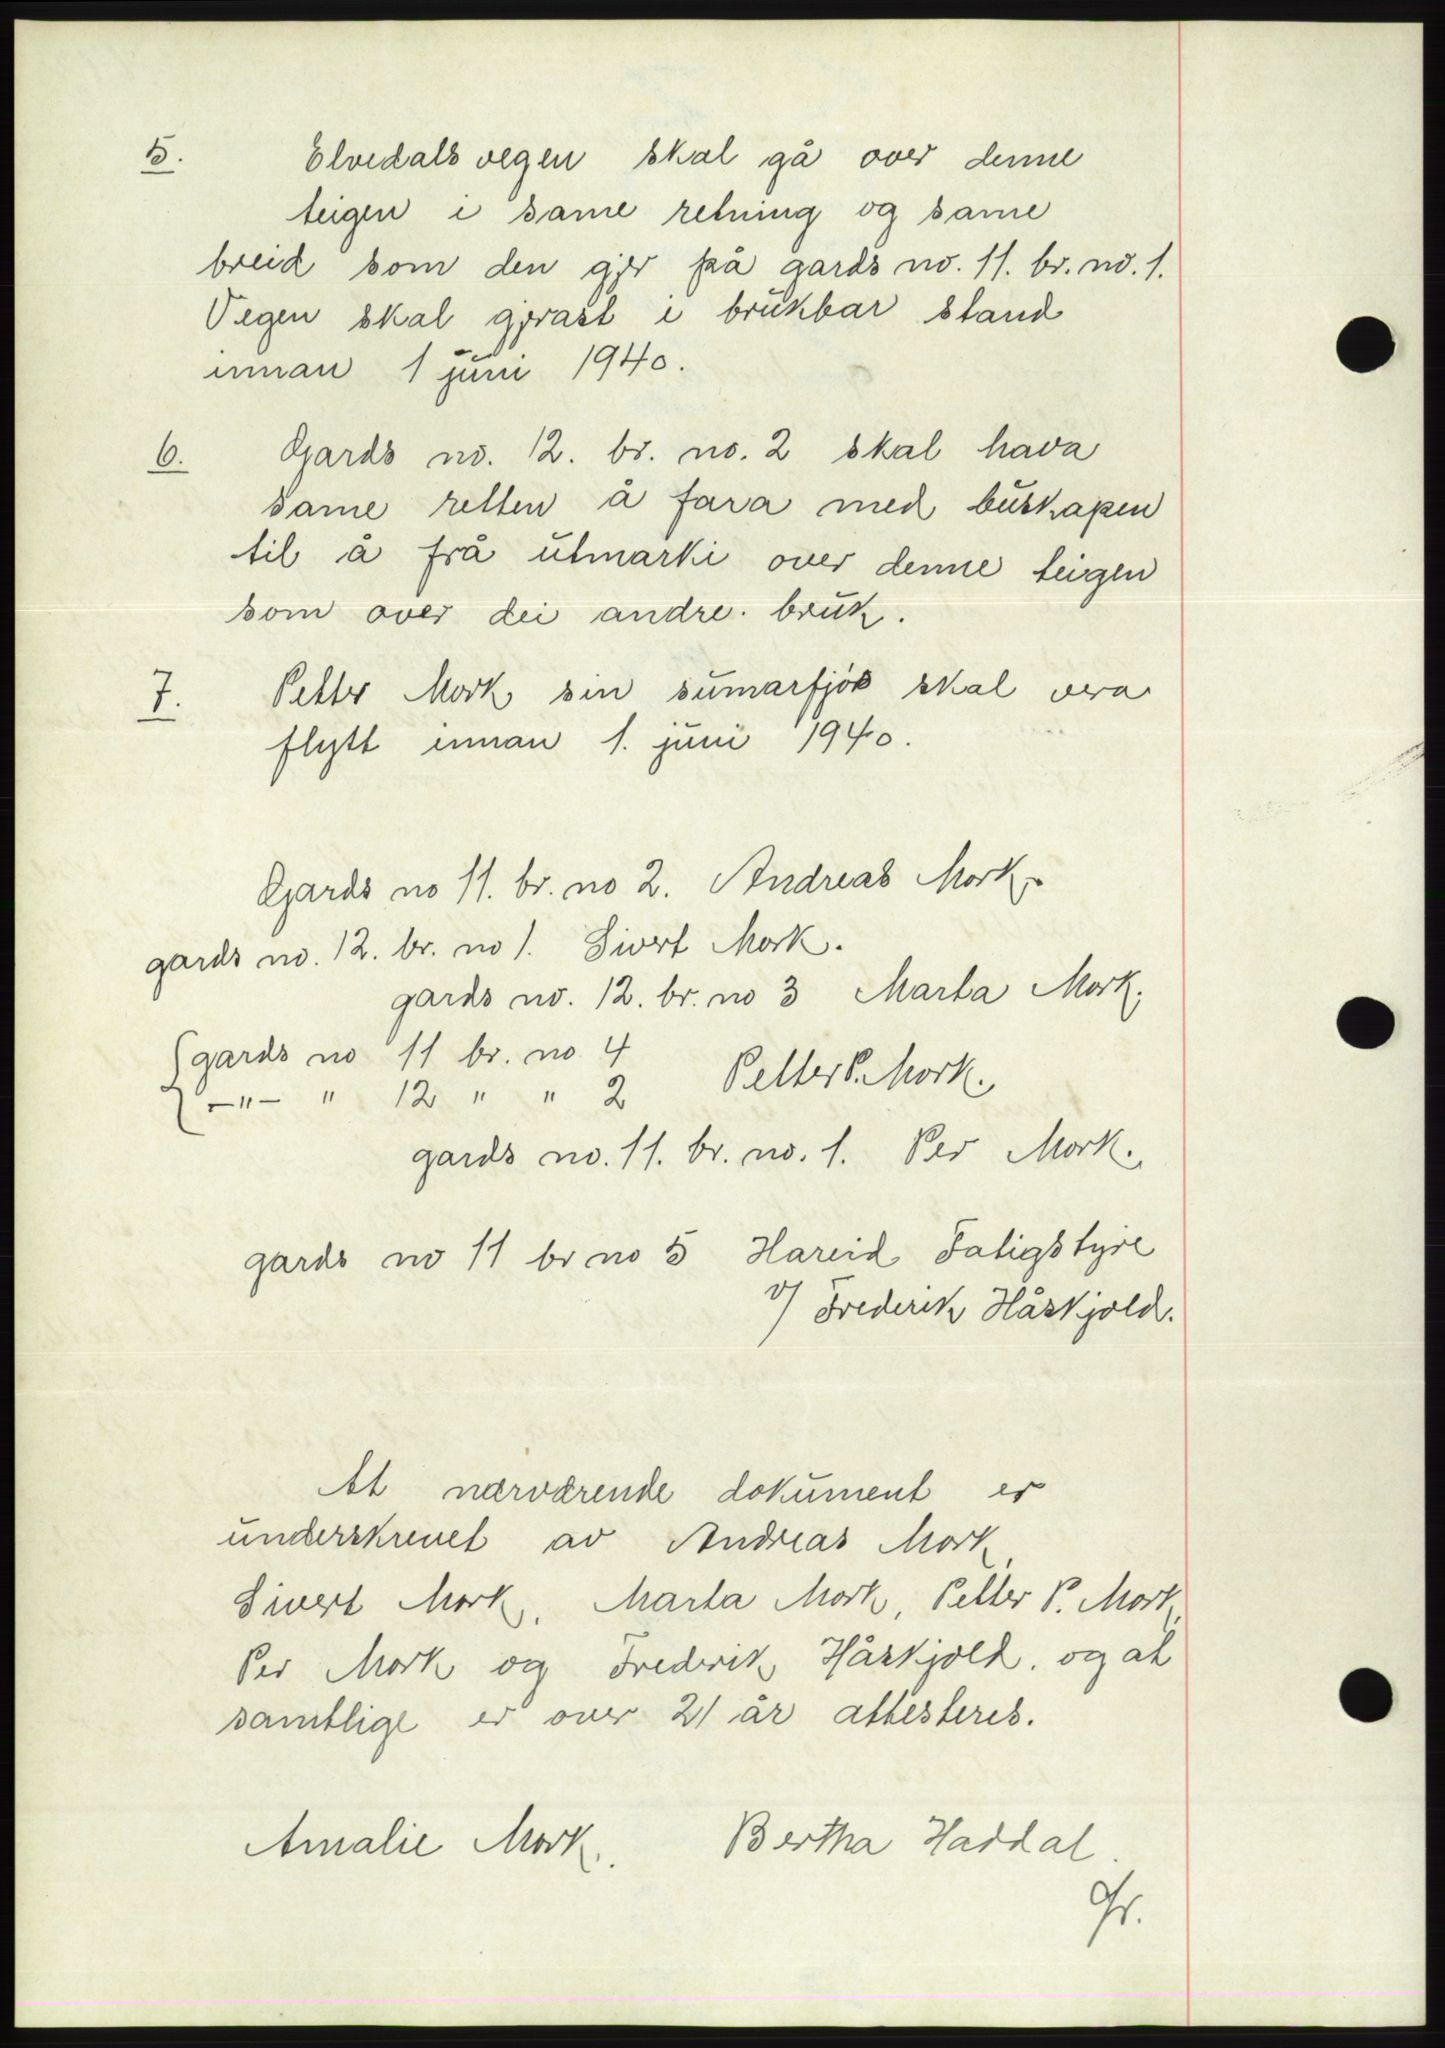 5. Elvedalsvegen skal gå over denne
teigen i same retning og same
breid som den gjer på gards no. 11. br. no. 1.
Vegen skal gjerast i brukbar stand
innan 1 juni 1940.
6. Gards no. 12. br. no. 2 skal hava
same retten å fara med buskapen
til å frå utmarki over denne teigen
som over dei andre. bruk.
7. Petter Mork sin sumarfjós skal vera
flytt innan 1. juni 1940.
Gards no 11. br. no 2. Andreas Mork.
gards no. 12. br. no 1. Sivert Mork.
gards no. 12. br. no 3 Marta Mork.
gards no 11 br. no 4
-"- " 12 " " 2 Petter P. Mork.
gards no. 11. br. no. 1. Per Mork.
gards no 11 br no 5 Hareid Fatigstyre
v/ Frederik Håskjold.
At nærværende dokument er
underskrevet av Andreas Mork,
Sivert Mork, Marta Mork, Petter P. Mork,
Per Mork og Frederik Håskjold. og at
samtlige er over 21 år attesteres.
Amalie Mork. Bertha Haddal.